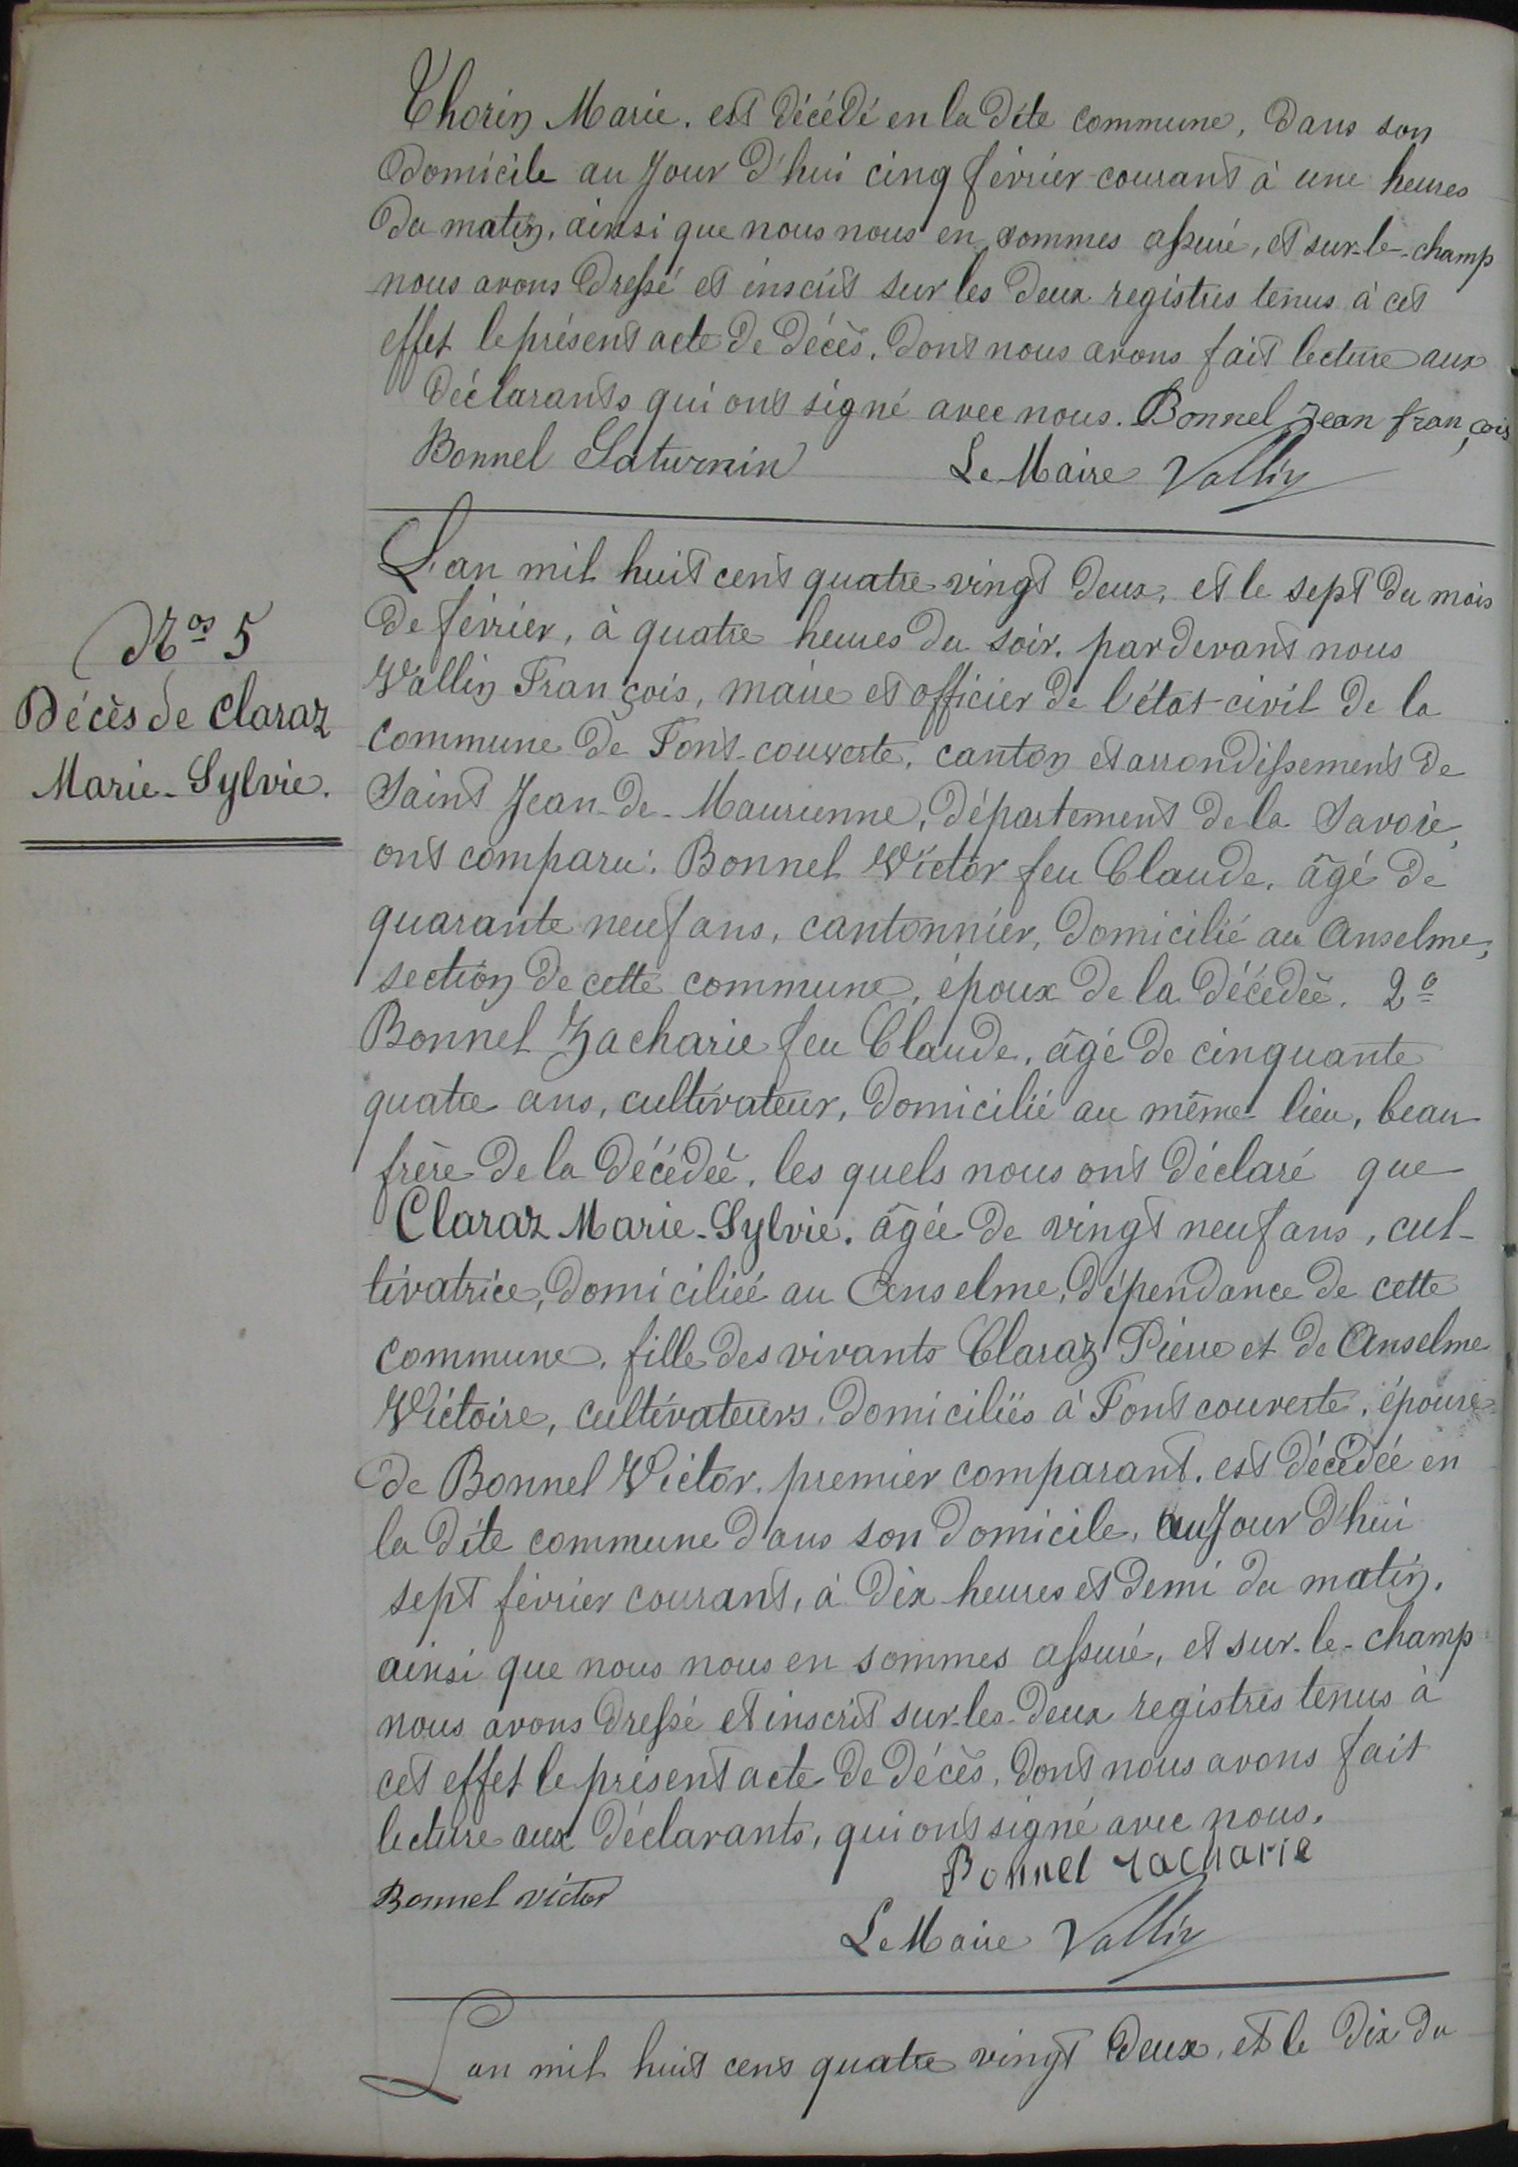 Thorin Marie. est décédé en la dite commune, dans son
domicile au Jour d'hui cinq février courant à une heures
du matin, ainsi que nous nous en sommes assuré, et sur-le-champ
nous avons dressé et inscrit sur les deux registres tenus à cet
effet le présent acte de décès, dont nous avons fait lecture aux
déclarants qui ont signé avec nous. Bonnel Jean françois
Bonnel Saturnin Le Maire Vallin
L'an mil huit cent quatre vingt deux, et le sept du mois
de février, à quatre heures du soir. pardevant nous
Nos 5
Vallin François, maire et officier de l'état-civil de la
Décès de Claraz
commune de Font-couverte, canton et arrondissement de
Marie-Sylvie.
Saint Jean-de-Maurienne, département de la Savoie,
ont comparu: Bonnel Victor feu Claude, âgé de
quarante neuf ans, cantonnier, domicilié au Anselme,
section de cette commune, époux de la décédée. 2o
Bonnel Zacharie feu Claude, âgé de cinquante
quatre ans, cultivateur, domicilié au même lieu, beau
frère de la décédée, les quels nous ont déclaré que
Claraz Marie-Sylvie. âgée de vingt neuf ans, cul-
tivatrice, domiciliée au Anselme, dépendance de cette
commune, fille des vivants Claraz Pierre et de Anselme
Victoire, cultivateurs, domiciliés à Font couverte, épouse
de Bonnel Victor, premier comparant, est décédée en
la dite commune dans son domicile, au Jour d'hui
sept février courant, à dix heures et demi du matin,
ainsi que nous nous en sommes assuré, et sur-le-champ
nous avons dressé et inscrit sur-les-deux registres tenus à
cet effet le présent acte de décès, dont nous avons fait
lecture aux déclarants, qui ont signé avec nous.
Bonnel Zacharie
Bonnel victor
Le Maire Vallin
L'an mil huit cent quatre vingt deux, et le dix du